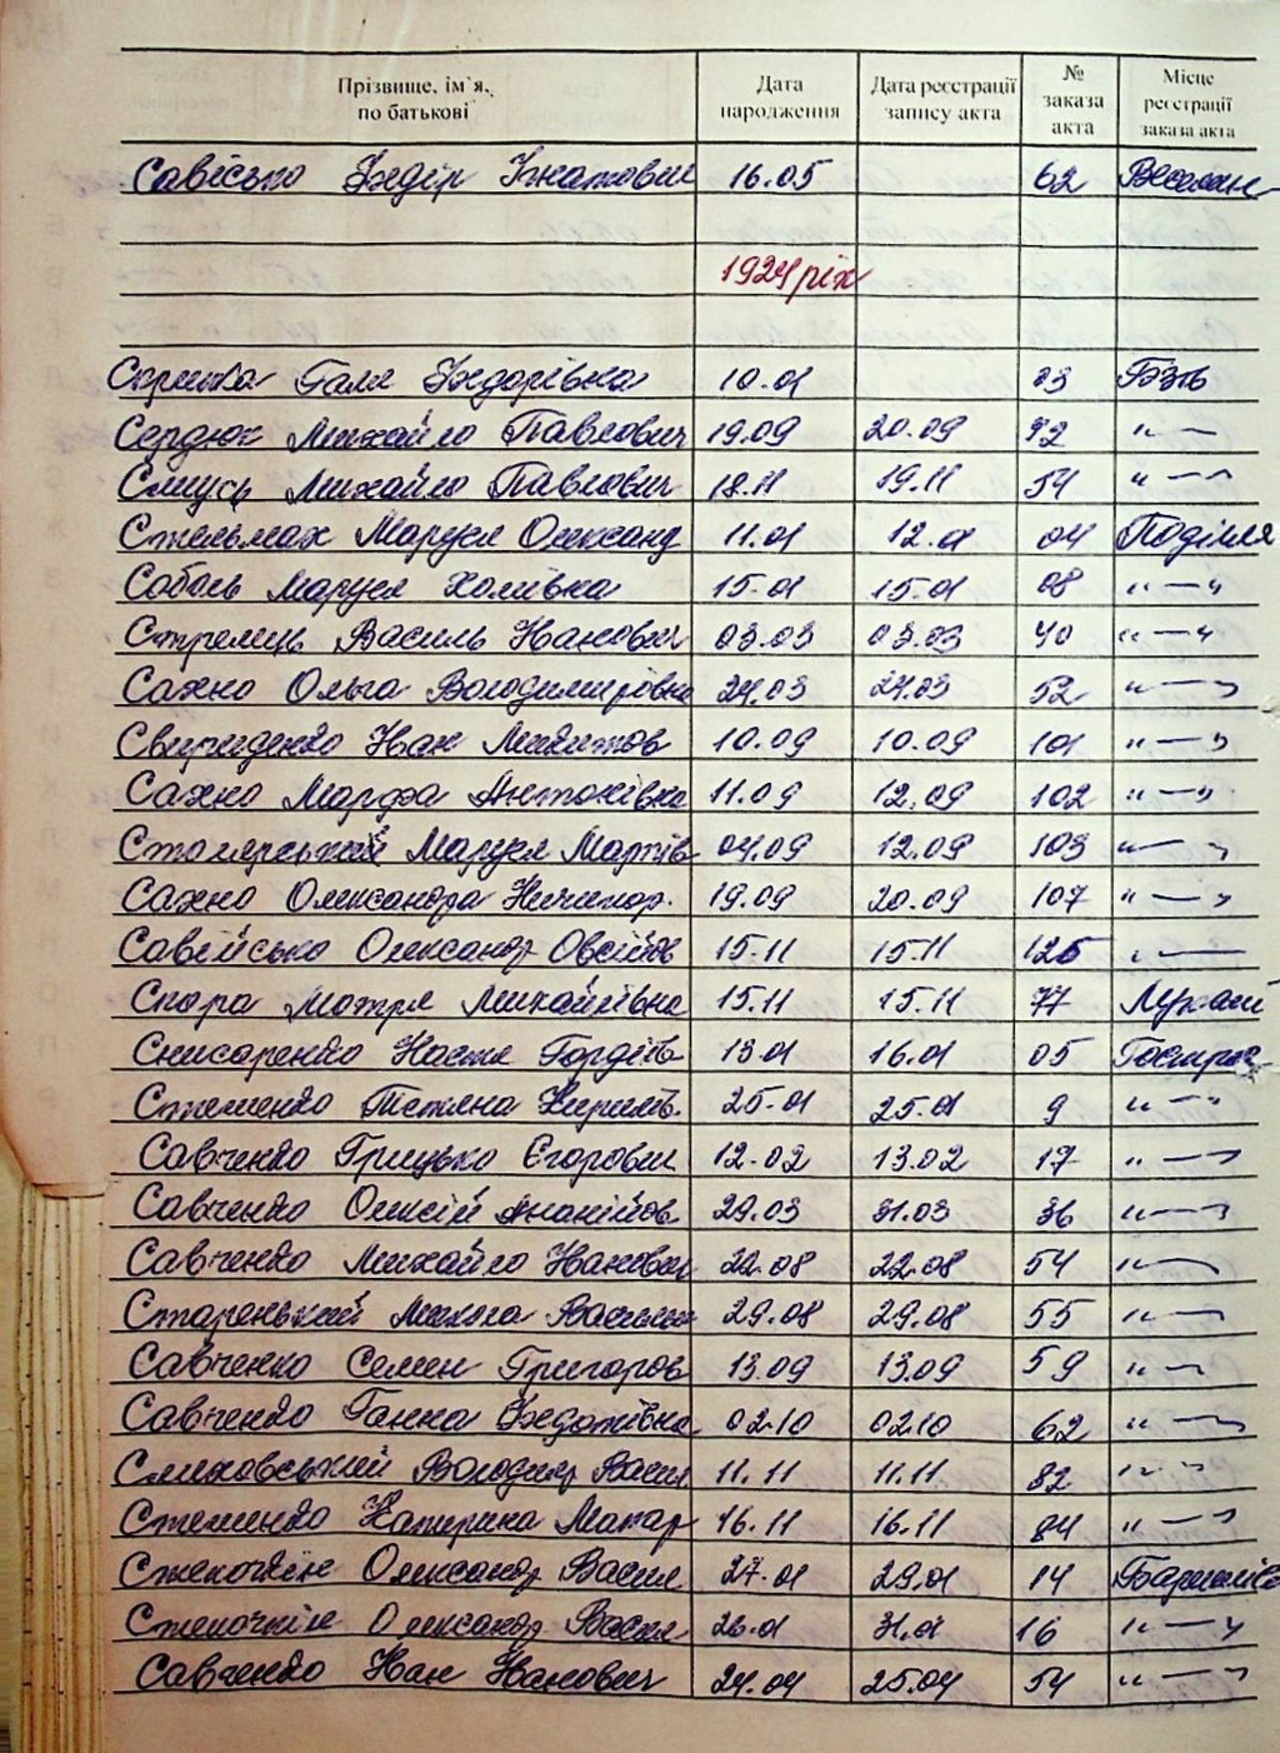 Прізвище, ім`я, по батькові Дата народження Дата реєстрації запису акта № заказа акта Місце реєстрації заказа акта
Савісько Федір Ігнатович 16.05 62 Веселян
1924 рік
Галя Федорівка 10.01 03 Бзів
Сердюк Михайло Павлович 19.09 20.09 92 "—
Слицсь Михайло Павлович 18.11 19.11 54 "—"
Стельмах Маруся Олександ 11.01 12.01 04 Поділля
Соболь Маруся Хомівна 15.01 15.01 08 "—"
Стрелець Василь Іванович 03.03 03.03 40 "—"
Сахно Ольга Володимирівна 24.03 24.03 52 "—"
Свириденко Іван Микитов 10.09 10.09 101 "—"
Сахно Марфа Антонівна 11.09 12.09 102 "—"
Столярський Маруся Мартів 04.09 12.09 103 "—"
Сахно Олександра Ничипор. 19.09 20.09 107 "—"
Савійсько Олександр Овсійов 15.11 15.11 125 "—
Спора Мотря Михайлівна 15.11 15.11 77 Лукаші
Снисаренко Настя Гордіїв 13.01 16.01 05
Стеменко Тетяна Кирилів. 25.01 25.01 9 "—"
Савченко Грицько Єгорович 12.02 13.02 17 "—"
Савченко Олексій Ананійов 29.03 31.03 36 "—"
Савченко Михайло Іванович 22.08 22.08 54 "—
Старенький Микола Васильов 29.08 29.08 55 "—
Савченко Семен Григоров 13.09 13.09 59 "—
Савченко Ганна Федотівна 02.10 02.10 62 "—
Слиховський Володимир Васил 11.11 11.11 82 "—"
Стеменко Катерина Макар 16.11 16.11 84 "—"
Олександр Васил 27.01 29.01 14
Стеночкін Олександр Васил 26.01 31.01 16 "—"
Савченко Іван Іванович 24.04 25.04 54 "—"